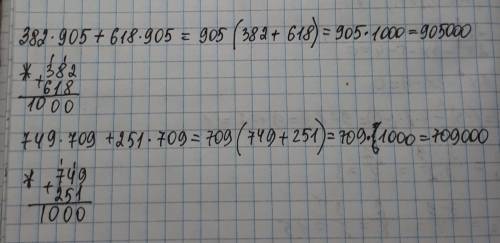 382·905+618·905=905(382+618)=905·1000=905000
* 382
+ 618
1000
749·709+251·709=709(749+251)=709·1000=709000
* 749
+ 251
1000